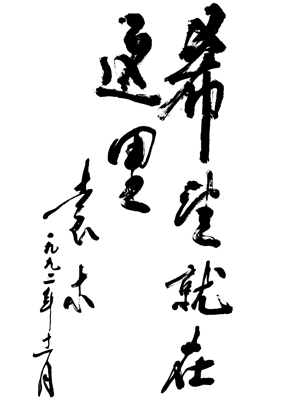 希望就在
這里
袁木
一九九二年十二月